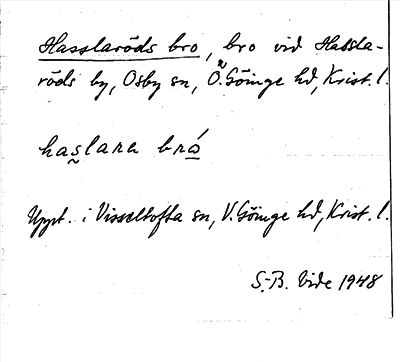 Hasslaröds bro, bro vid Hassla-
röds by, Osby sn, Ö. Göinge hd, Krist. l.
haslara bró
Uppt. i Visseltofta sn, V. Göinge hd, Krist. l.
S.-B. Vide 1948